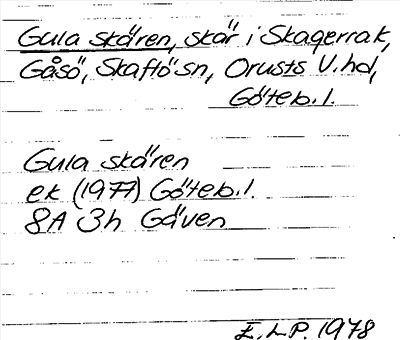 Gula skären, skär i Skagerrak,
Gåsö, Skaftö sn, Orusts V. hd,
Göteb. l.
Gula skären
ek (1977) Göteb. l.
8A 3h Gäven
E. L P. 1978